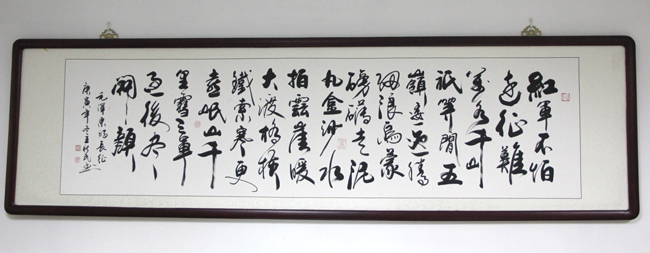 紅軍不怕
遠征難
萬水千山
祇等閒五
嶺逶迤騰
細浪烏蒙
磅礴走泥
丸金沙水
拍雲崖暖
大渡橋橫
鐵索寒更
喜岷山千
里雪三軍
過後盡
開顏
毛澤東詩長征
庚寅年冬王